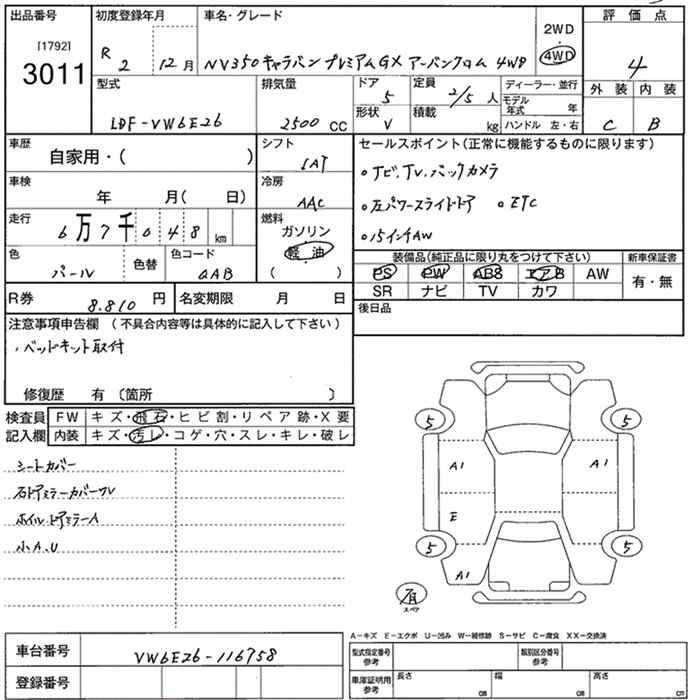 出品番号 初度登録年月 車名・グレード 2WD 評価点
[1792] 3011 R 2 12月 NV350キャラバン プレミアムGX アーバンクロム 4WD 4WD 4
型式 排気量 ドア 定員 ディーラー・並行 外装 内装
LDF-VW6E26 2500 CC 5 2/5 人 モデル年式 年
形状 積載 C B
V kg ハンドル 左・右
車歴 自家用・( ) シフト セールスポイント(正常に機能するものに限ります)
IAT
車検 年 月( 日) 冷房 。ナビ、TV、バックカメラ
AAC 。左パワースライドドア 。ETC
走行 6万7千048km 燃料 。15インチAW
ガソリン
軽油
( )
色 パール 色替 色コード QAB 装備品(純正品に限り丸をつけて下さい) 新車保証書
PS PW ABS エアB AW 有・無
SR ナビ TV カワ
R券 8.810 円 名変期限 月 日 後日品
注意事項申告欄(不具合内容等は具体的に記入して下さい)
・ベッドキット取付
修復歴 有 〔箇所 〕
検査員 FW キズ・飛石・ヒビ割・リペア跡・X要
記入欄 内装 キズ・汚レ・コゲ・穴・スレ・キレ・破レ
シートカバー
右ドアミラーカバーワレ
ホイル ドアミラーA
小A.U
5 5
A1 A1
E
5 5
A1
スペア
A-キズ E-エクボ U-凹み W-補修跡 S-サビ C-腐食 XX-交換済
車台番号 VW6E26-116758 型式指定番号参考 類別区分番号参考
登録番号 車庫証明用参考 長さ cm 幅 cm 高さ cm